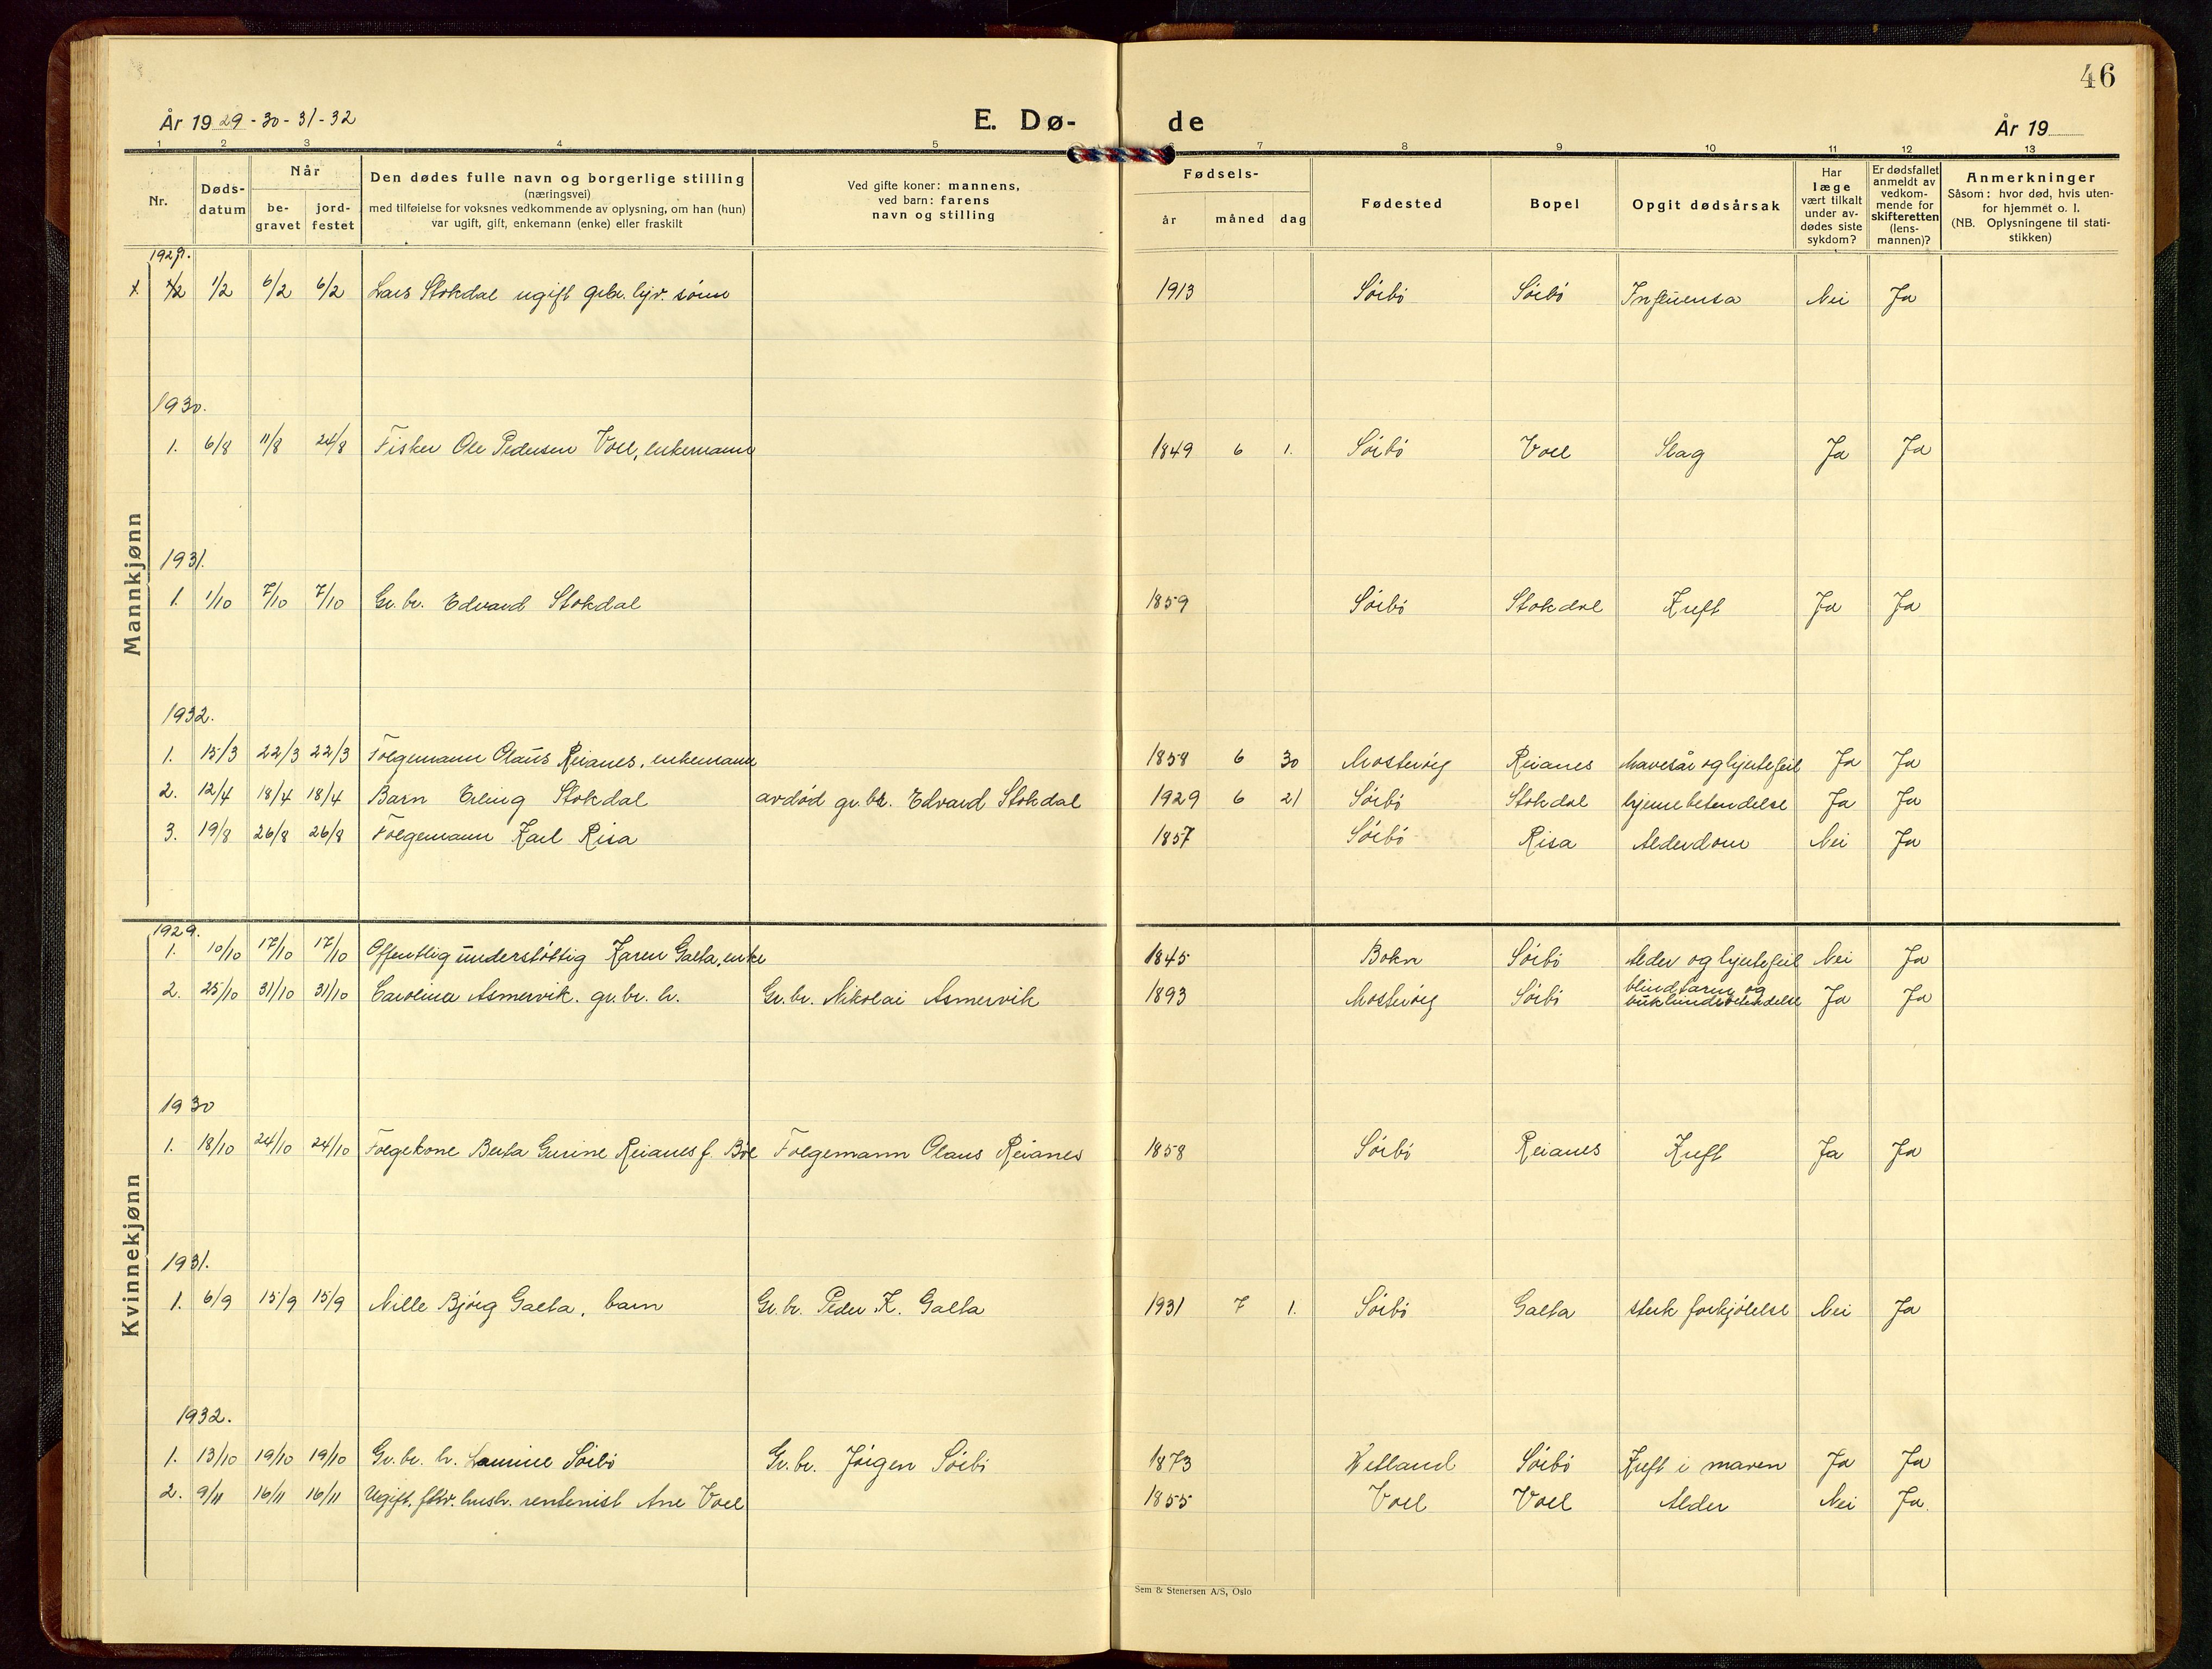 46
År 1929-30-31-32 E. Dø- de År 19
1 2 3 4 5 7 8 9 10 11 12 13
Nr. Døds-datum Når be-gravet jord-festet Den dødes fulle navn og borgerlige stilling (næringsvei) med tilføielse for voksnes vedkommende av oplysning, om han (hun) var ugift, gift, enkemann (enke) eller fraskilt Ved gifte koner: mannens, ved barn: farens navn og stilling Fødsels- år måned dag Fødested Bopel Opgit dødsårsak Har læge vært tilkalt under av-dødes siste sykdom? Er dødsfallet anmeldt av vedkom-mende for skifteretten (lens-mannen)? Anmerkninger Såsom: hvor død, hvis uten-for hjemmet o. l. (NB. Oplysningene til stati-stikken)
Mannkjønn
1929.
1/2 6/2 6/2 Lars Stokdal ugift 1913 Sörbö Sörbö Influensa Nei Ja
1930.
1. 6/8 11/8 24/8 Fisker Ole Pedersen Voll, enkemann 1849 6 1. Sörbö Voll Slag Ja Ja
1931.
1. 1/10 7/10 7/10 Gr.br. Edvard Stokdal 1859 Sörbö Stokdal Kreft Ja Ja
1932.
1. 15/3 22/3 22/3 Folgemann Olaus Reianes, enkemann 1858 6 30 Mosteröy Reianes Mavesår og hjertefeil Ja Ja
2. 12/4 18/4 18/4 Barn Erling Stokdal avdød gr.br. Edvard Stokdal 1929 6 21 Sörbö Stokdal hjernebetendelse Ja Ja
3. 19/8 26/8 26/8 Folgemann Karl Risa 1857 Sörbö Risa Alderdom Nei Ja
Kvinnekjønn
1929.
1. 10/10 17/10 17/10 Offentlig understöttig Karen Galta, enke 1845 Bokn Sörbö Alder og hjertefeil Nei Ja
2. 25/10 31/10 31/10 Carolina Asmervik. gr.br. h. Gr.br. Nikolai Asmervik 1893 Mosteröy Sörbö blindtarm og bukhindebetendelse Ja Ja
1930
1. 18/10 24/10 24/10 Folgekone Berta Gurine Reianes f. Folgemann Olaus Reianes 1858 Sörbö Reianes Kreft Ja Ja
1931.
1. 6/9 15/9 15/9 Nille Björg Galta, barn Gr.br. Peder K. Galta 1931 7 1. Sörbö Galta sterk forkjölelse Nei Ja
1932.
1. 13/10 19/10 19/10 Gr.br. h. Sörbö Gr.br. Jörgen Sörbö 1873 Sörbö Kreft i maven Ja Ja
2. 9/11 16/11 16/11 Ugift. rentenist Ane Voll 1855 Voll Voll Alder Nei Ja.
Sem & Stenersen A/S, Oslo